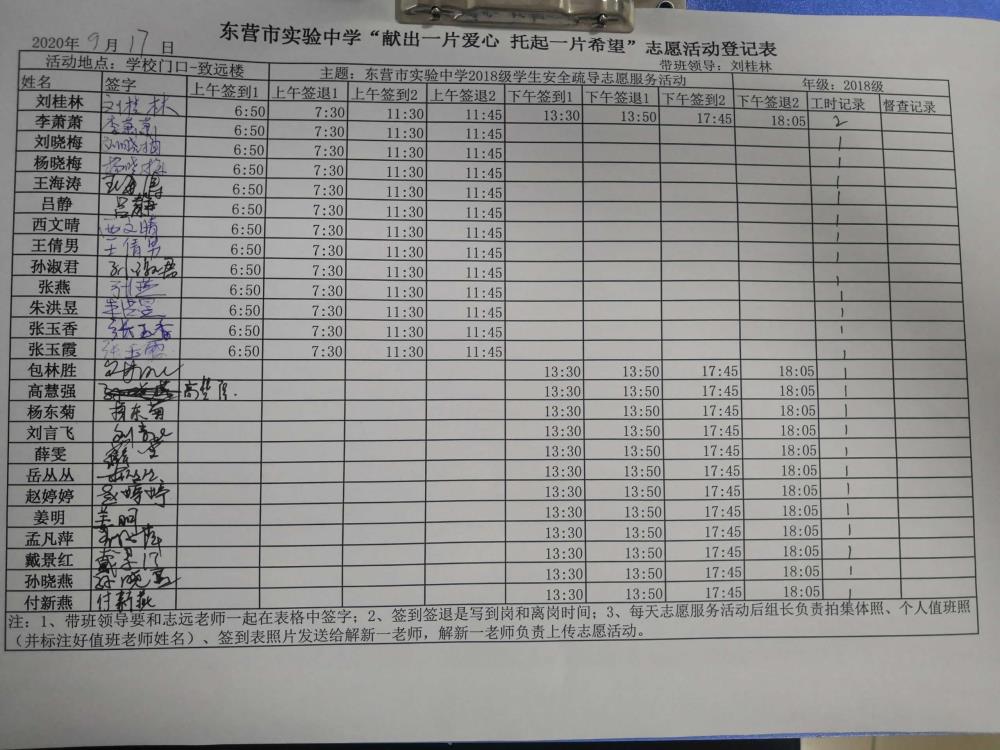 东营市实验中学“献出一片爱心 托起一片希望”志愿活动登记表
2020年 9 月 17 日 带班领导：刘桂林
活动地点：学校门口-致远楼 主题：东营市实验中学2018级学生安全疏导志愿服务活动 年级：2018级
姓名 签字 上午签到1 上午签退1 上午签到2 上午签退2 下午签到1 下午签退1 下午签到2 下午签退2 工时记录 督查记录
刘桂林 刘桂林 6:50 7:30 11:30 11:45 13:30 13:50 17:45 18:05 2
李萧萧 李萧萧 6:50 7:30 11:30 11:45 1
刘晓梅 刘晓梅 6:50 7:30 11:30 11:45 1
杨晓梅 杨晓梅 6:50 7:30 11:30 11:45 1
王海涛 王海涛 6:50 7:30 11:30 11:45 1
吕静 吕静 6:50 7:30 11:30 11:45 1
西文晴 西文晴 6:50 7:30 11:30 11:45 1
王倩男 王倩男 6:50 7:30 11:30 11:45 1
孙淑君 孙淑君 6:50 7:30 11:30 11:45 1
张燕 张燕 6:50 7:30 11:30 11:45 1
朱洪昱 朱洪昱 6:50 7:30 11:30 11:45 1
张玉香 张玉香 6:50 7:30 11:30 11:45 1
张玉霞 张玉霞 6:50 7:30 11:30 11:45 1
包林胜 13:30 13:50 17:45 18:05 1
高慧强 高慧强 13:30 13:50 17:45 18:05 1
杨东菊 杨东菊 13:30 13:50 17:45 18:05 1
刘言飞 刘言飞 13:30 13:50 17:45 18:05 1
薛雯 薛雯 13:30 13:50 17:45 18:05 1
岳丛丛 13:30 13:50 17:45 18:05 1
赵婷婷 赵婷婷 13:30 13:50 17:45 18:05 1
姜明 姜明 13:30 13:50 17:45 18:05 1
孟凡萍 13:30 13:50 17:45 18:05 1
戴景红 戴景红 13:30 13:50 17:45 18:05 1
孙晓燕 孙晓燕 13:30 13:50 17:45 18:05 1
付新燕 付新燕 13:30 13:50 17:45 18:05 1
注：1、带班领导要和志远老师一起在表格中签字；2、签到签退是写到岗和离岗时间；3、每天志愿服务活动后组长负责拍集体照、个人值班照
（并标注好值班老师姓名）、签到表照片发送给解新一老师，解新一老师负责上传志愿活动。